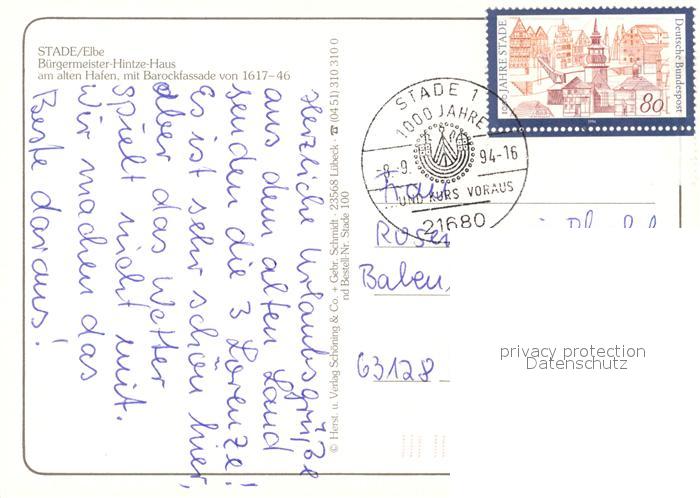 STADE/Elbe
Bürgermeister-Hintze-Haus
am alten Hafen, mit Barockfassade von 1617–46
Herzliche Urlaubsgrüße
aus dem alten Land
senden die 3 Lorenze!
Es ist sehr schön hier,
aber das Wetter
spielt nicht mit.
Wir machen das
Beste daraus!
© Herst. u. Verlag Schöning & Co. + Gebr. Schmidt · 23568 Lübeck · ☎ (04 51) 310 310 0
nd Bestell-Nr. Stade 100
STADE 1
1000 JAHRE
8.-9. 94-16
UND KURS VORAUS
21680
JAHRE STADE
Deutsche Bundespost
80
1994
Frau
Baben
63128
privacy protection
Datenschutz